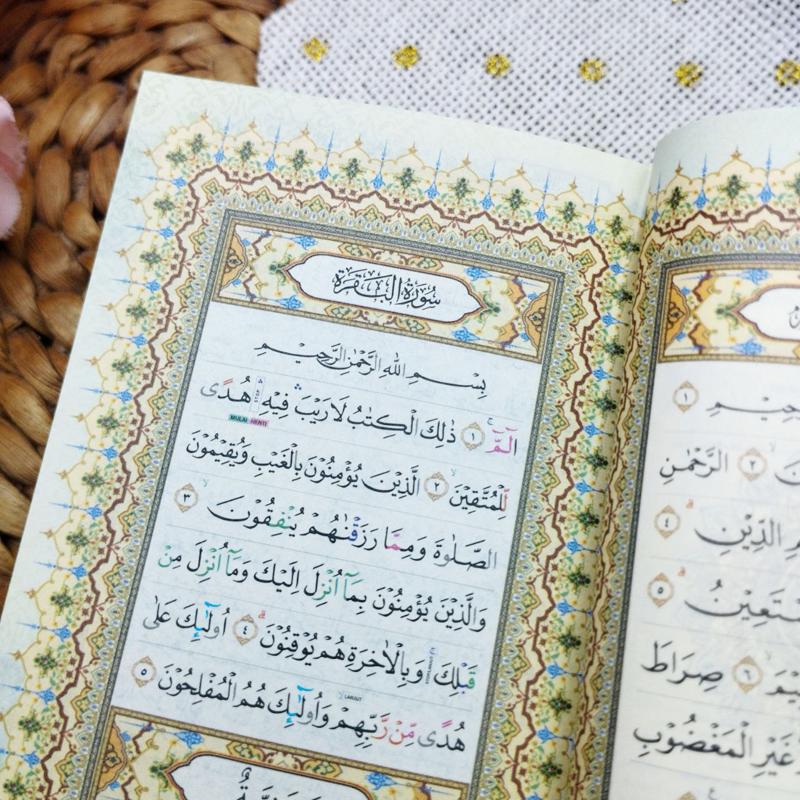 سُورَةُ الْبَقَرَةِ
بِسْمِ اللّٰهِ الرَّحْمٰنِ الرَّحِيْمِ
الۤمّۤ ۚ ١ ذٰلِكَ الْكِتٰبُ لَا رَيْبَ ۛ فِيْهِ ۛ هُدًى
MULAI HENTI
لِّلْمُتَّقِيْنَ ۙ ٢ الَّذِيْنَ يُؤْمِنُوْنَ بِالْغَيْبِ وَيُقِيْمُوْنَ
الصَّلٰوةَ وَمِمَّا رَزَقْنٰهُمْ يُنْفِقُوْنَ ۙ ٣
وَالَّذِيْنَ يُؤْمِنُوْنَ بِمَآ اُنْزِلَ اِلَيْكَ وَمَآ اُنْزِلَ مِنْ
قَبْلِكَ ۚ وَبِالْاٰخِرَةِ هُمْ يُوْقِنُوْنَ ۗ ٤ اُولٰۤىِٕكَ عَلٰى
هُدًى مِّنْ رَّبِّهِمْ ۙ وَاُولٰۤىِٕكَ هُمُ الْمُفْلِحُوْنَ ٥
LANJUT
١
حِيْمِ
٢ الرَّحْمٰنِ
الدِّيْنِ ۗ ٤
٥
سْتَعِيْنُ ۗ
٦ صِرَاطَ
غَيْرِ الْمَغْضُوْبِ